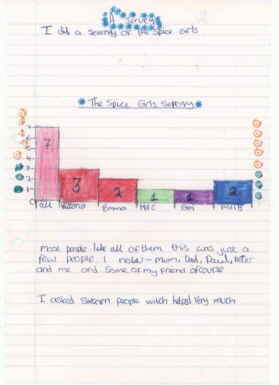 A Survey
I did a Servery of the Spice Girls
The Spice Girls Servery
7
3
2
1
1
2
all
Victoria
Emma
Mel C
Geri
Mel B
most people like all of them this was just a
few people I notar - mum, Dad, Paul, Peter
and me and Some of my friend ofcourse
I asked Sixteen people witch helped Very much